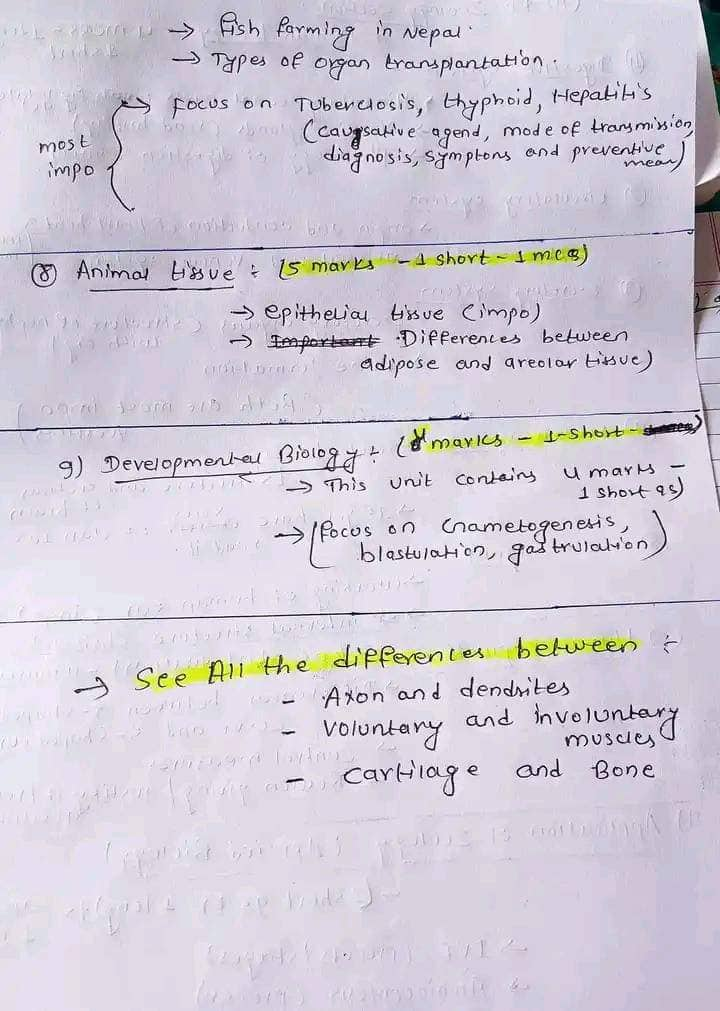 → fish farming in Nepal.
→ Types of organ transplantation.
→ focus on Tuberclosis, thyphoid, Hepatitis
(caugsative agend, mode of transmission,
most impo
diagnosis, symptons and preventive mean)
⑧ Animal tissue : (5 marks - 1 short - 1 mcq)
→ epithelial tissue (impo)
→ Important Differences between
adipose and areolar tissue)
9) Developmental Biology : (4 marks - 1-short-
→ This unit contains 4 marks -
1 short qs)
→ (focus on Gnametogenesis,
blastulation, gastrulation)
→ See All the differences between :
- Axon and dendrites
- voluntary and involuntary
muscles
- Cartilage and Bone